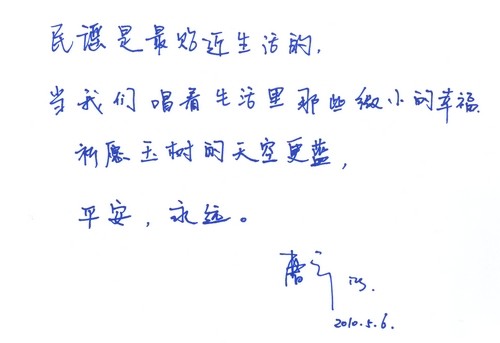 民谣是最贴近生活的,
当我们唱着生活里那些微小的幸福
祈愿玉树的天空更蓝,
平安,永远。
2010.5.6.